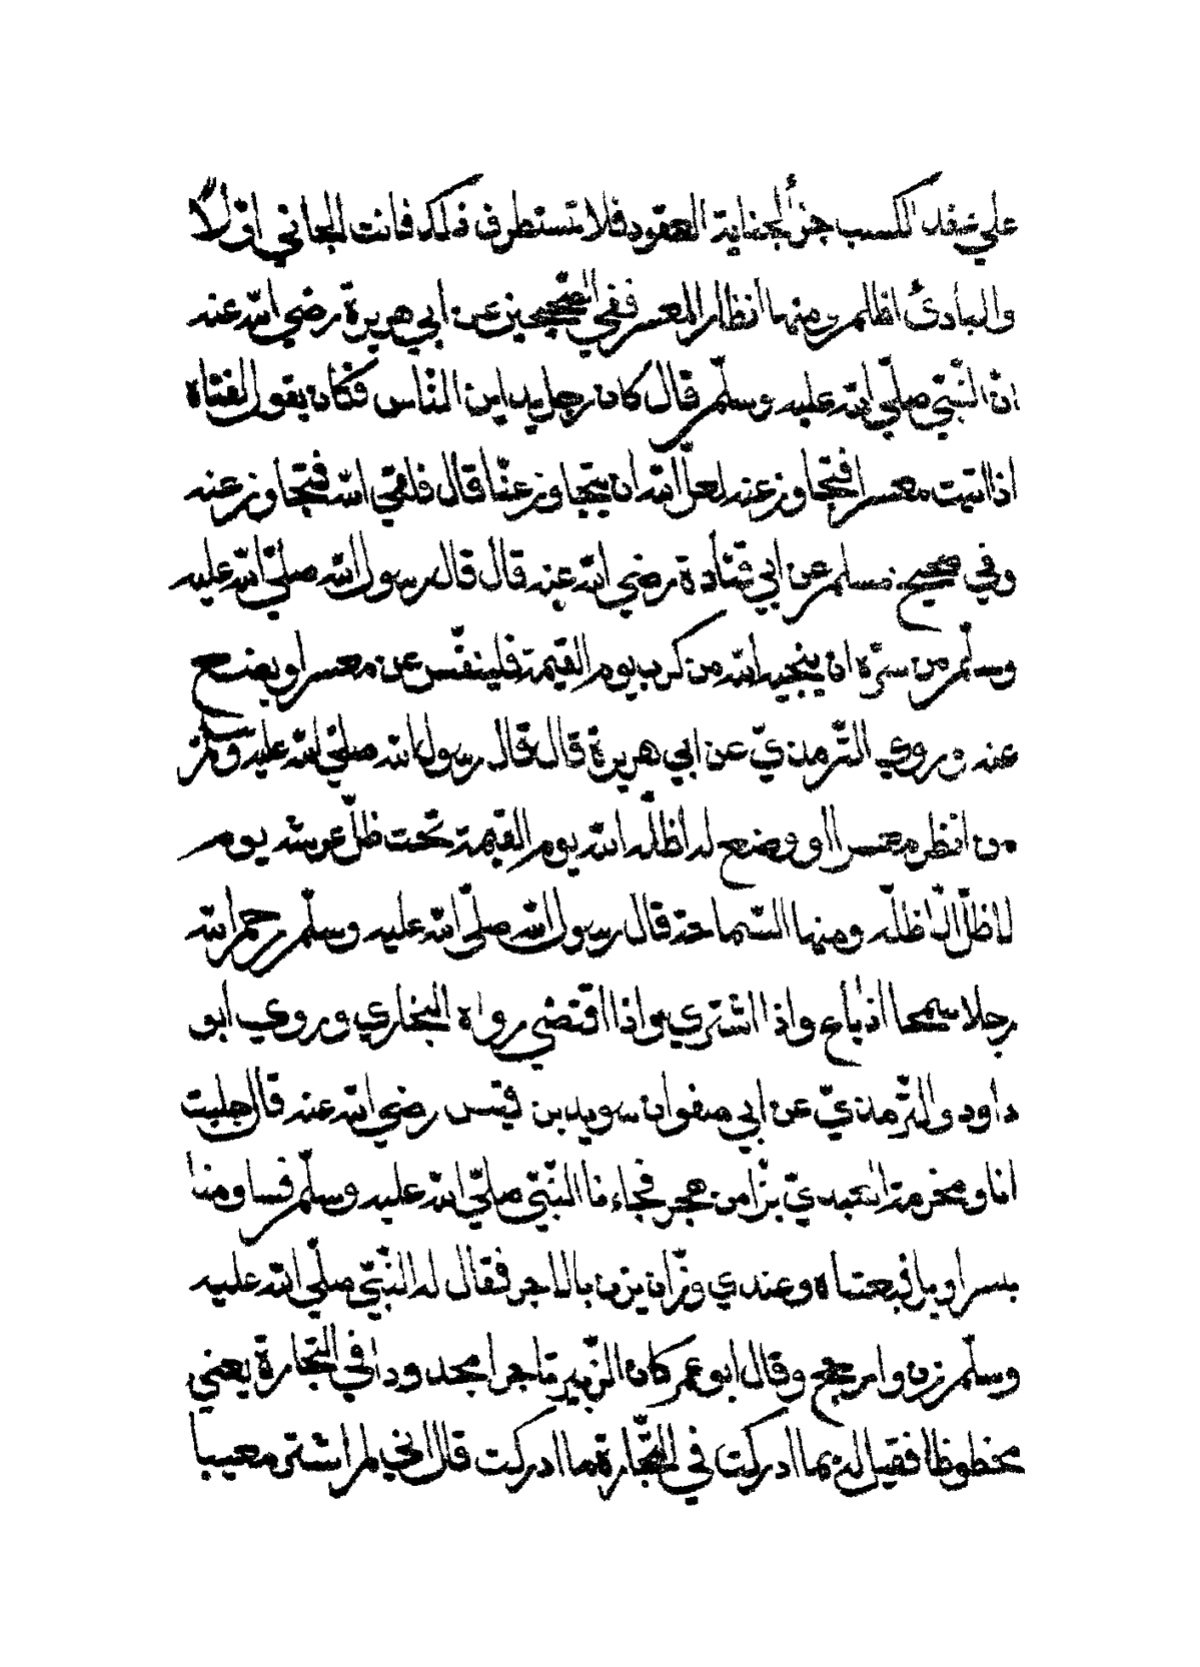 على عقد الكسب جزأ لجناية العقود فلا تستطرف ذلك فانت الجاني اولا
والبادئ اظلم ومنها انظار المعسر ففي الصحيحين عن ابي هريرة رضي الله عنه
انّ النّبيّ صلّي الله عليه وسلّم قال كان رجل يداين النّاس فكان يقول لفتاه
اذا اتيت معسرا فتجاوز عنه لعلّ الله ان يتجاوز عنّا قال فلقي الله فتجاوز عنه
وفي صحيح مسلم عن ابي قتادة رضي الله عنه قال قال رسول الله صلّي الله عليه
وسلّم من سرّه ان ينجيه الله من كرب يوم القيمة فلينفّس عن معسر او يضع
عنه وروي التّرمذيّ عن ابي هريرة قال قال رسول الله صلّي الله عليه وسلّم
من انظر معسرا او وضع له اظلّه الله يوم القيمة تحت ظلّ عرشه يوم
لا ظلّ الّا ظلّه ومنها السّماحة قال رسول الله صلّي الله عليه وسلّم رحم الله
رجلا سمحا اذا باع واذا اشتري واذا اقتضي رواه البخاري وروي ابو
داود والتّرمذيّ عن ابي صفوان سويد بن قيس رضي الله عنه قال جلبت
انا ومخرمة العبديّ بزّا من هجر فجاءنا النّبيّ صلّي الله عليه وسلّم فساومنا
بسراويل فبعناه وعندي وزّان يزن بالاجر فقال له النّبيّ صلّي الله عليه
وسلّم زن وارجح وقال ابو عمر كان الزّبير تاجرا مجدودا في التّجارة يعني
محظوظا فقيل له بما ادركت في التّجارة ما ادركت قال انّي لم اشتر معيبا